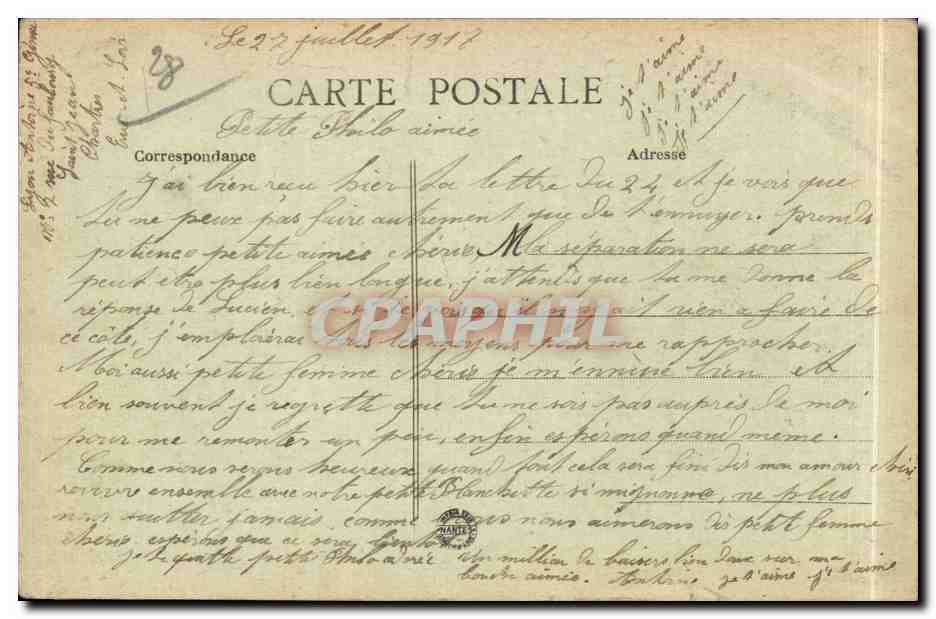 Le 27 juillet 1917
28
CARTE POSTALE
je t'aime
je t'aime
je t'aime
je t'aime
Antoine
Faubourg
Saint Jean
Chartres
Eure et Loir
Petite Philo aimée
Correspondance
Adresse
J'ai bien reçu hier ta lettre du 24 et je vois que
tu ne peux pas faire autrement que de t'ennuyer. prends
patience petite aimée chérie. la séparation ne sera
peut être plus bien longue, j'attends que tu me donne la
réponse de Lucien, et il n'y ait rien a faire de
ce côté, j'emploierai tous les moyens pour me rapprocher.
Moi aussi petite femme chérie je m'ennuie bien et
bien souvent je regrette que tu ne sois pas auprès de moi
pour me remonter un peu, enfin espérons quand même.
Comme nous serons heureux quand tout cela sera fini dis mon amour
revivre ensemble avec notre petite Blanchette si mignonne, ne plus
nous quitter jamais, comme nous nous aimerons dis petit femme
chérie, espérons que ce sera bientôt
je te quitte petite Philo adorée
un million de baisers bien doux sur ma
bouche aimée. Antoine je t'aime je t'aime
NANTES
CPAPHIL